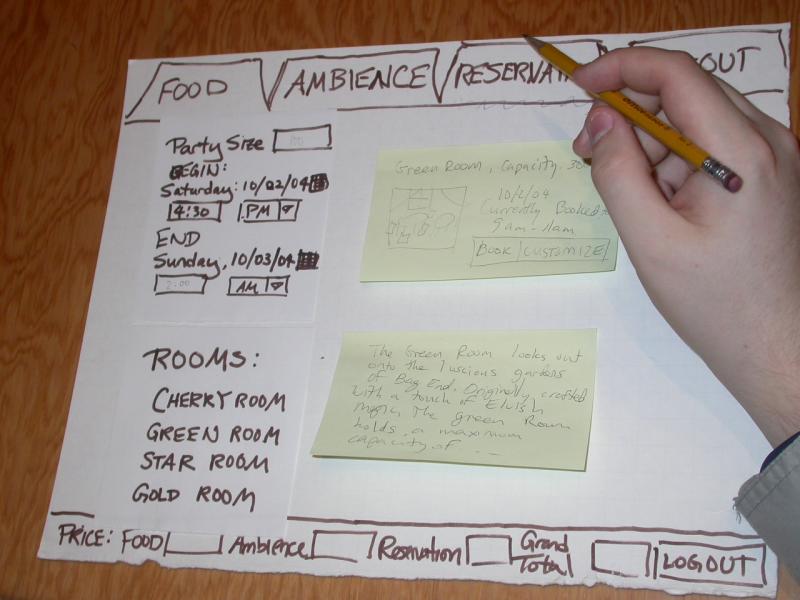 FOOD
AMBIENCE
RESERVATI
OUT
Party Size
BEGIN:
Saturday: 10/02/04
4:30 PM
END
Sunday, 10/03/04
2:00 AM
ROOMS:
CHERRY ROOM
GREEN ROOM
STAR ROOM
GOLD ROOM
Green Room, Capacity, 30
10/2/04
Currently Booked
9am - 11am
BOOK CUSTOMIZE
The Green Room looks out
onto the luscious gardens
of Bag End. Originally crafted
with a touch of Elvish
magic, The Green Room
holds a maximum
capacity of...
PRICE: FOOD Ambience Reservation Grand Total LOGOUT